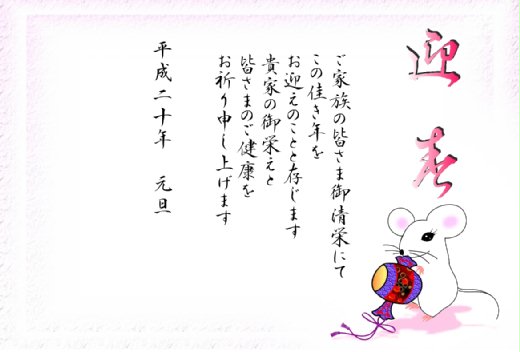 迎春
ご家族の皆さま御清栄にて
この佳き年を
お迎えのことと存じます
貴家の御栄えと
皆さまのご健康を
お祈り申し上げます
平成二十年　元旦